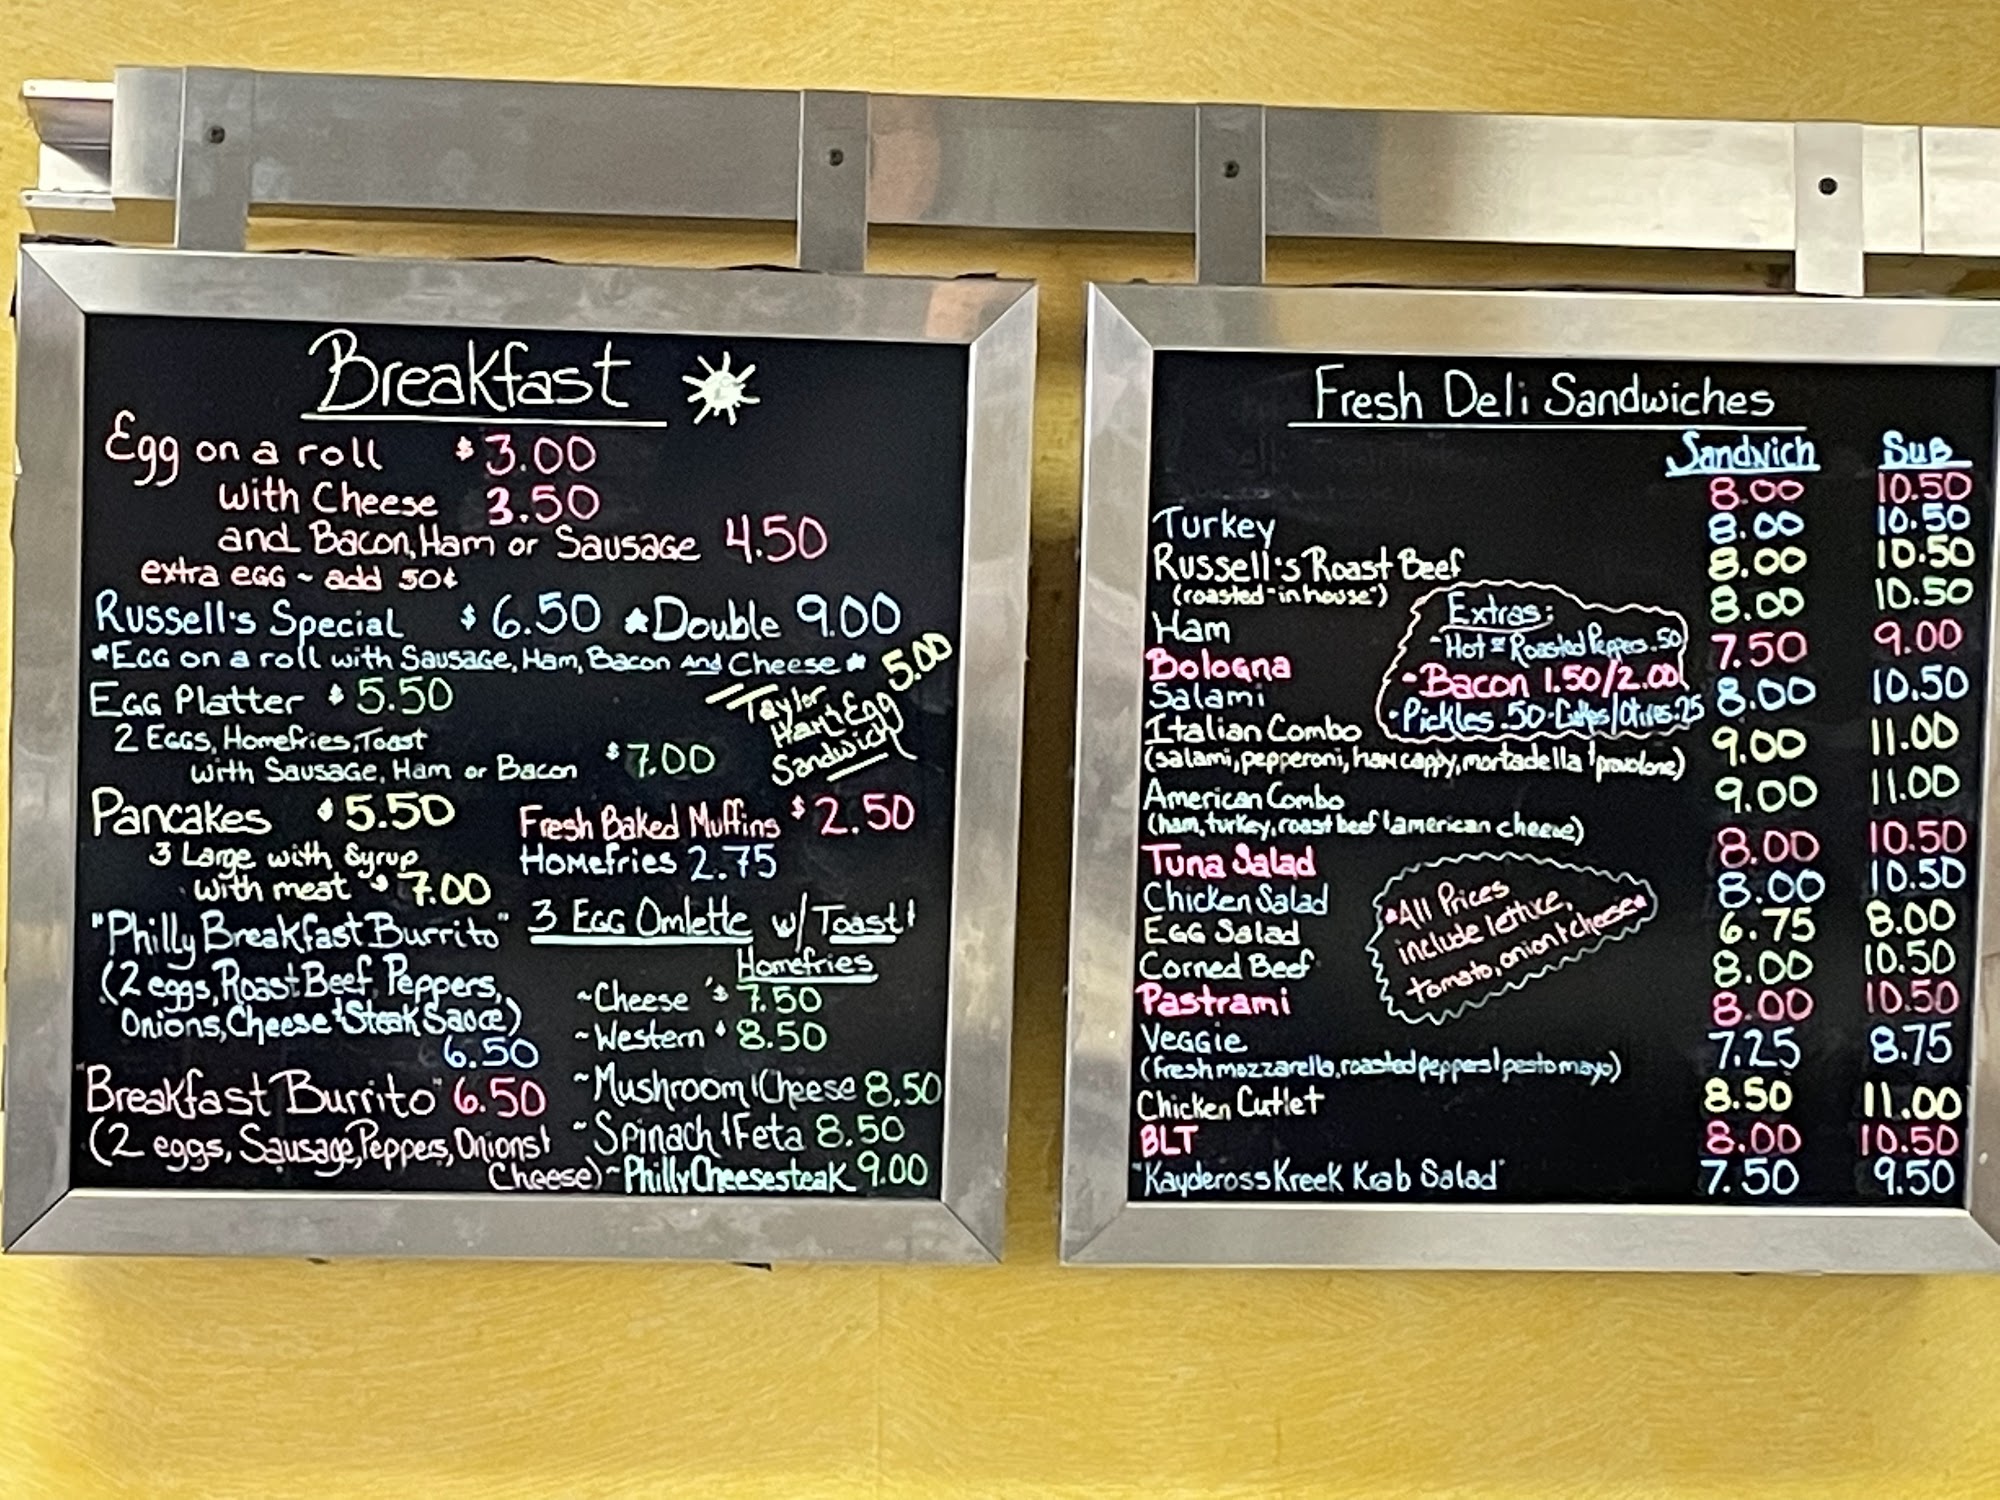 Breakfast
Egg on a roll $3.00
with Cheese 3.50
and Bacon, Ham or Sausage 4.50
extra egg ~ add 50¢
Russell's Special $6.50 *Double 9.00
*Egg on a roll with Sausage, Ham, Bacon And Cheese*
Taylor Ham & Egg Sandwich 5.00
Egg Platter $5.50
2 Eggs, Homefries, Toast
with Sausage, Ham or Bacon $7.00
Pancakes $5.50
3 Large with Syrup
with meat $7.00
Fresh Baked Muffins $2.50
Homefries 2.75
"Philly Breakfast Burrito"
(2 eggs, Roast Beef, Peppers,
Onions, Cheese & Steak Sauce)
6.50
"Breakfast Burrito" 6.50
(2 eggs, Sausage, Peppers, Onions &
Cheese)
3 Egg Omlette w/ Toast &
Homefries
~Cheese $7.50
~Western $8.50
~Mushroom & Cheese 8.50
~Spinach & Feta 8.50
~Philly Cheesesteak 9.00
Fresh Deli Sandwiches
Sandwich Sub
Turkey 8.00 10.50
Russell's Roast Beef 8.00 10.50
(roasted-in house)
Ham 8.00 10.50
Bologna 8.00 10.50
Salami 7.50 9.00
Italian Combo 8.00 10.50
(salami, pepperoni, ham cappy, mortadella & provolone) 9.00 11.00
American Combo 9.00 11.00
(ham, turkey, roast beef & american cheese)
Tuna Salad 8.00 10.50
Chicken Salad 8.00 10.50
Egg Salad 6.75 8.00
Corned Beef 8.00 10.50
Pastrami 8.00 10.50
Veggie 7.25 8.75
(fresh mozzarella, roasted peppers & pesto mayo)
Chicken Cutlet 8.50 11.00
BLT 8.00 10.50
"Kaydeross Kreek Krab Salad" 7.50 9.50
Extras:
-Hot or Roasted Peppers .50
-Bacon 1.50/2.00
-Pickles .50-Cukes/Olives.25
*All Prices
include lettuce,
tomato, onion & cheese*